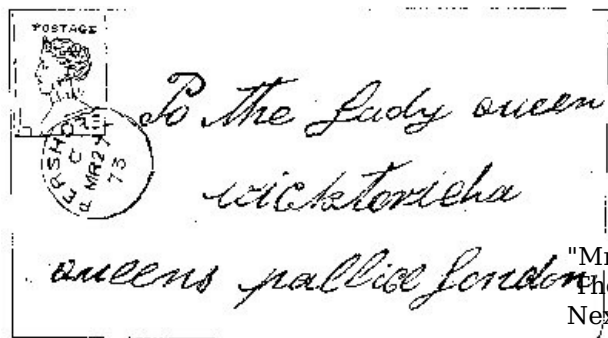 POSTAGE
PERSHORE
C
MR 27
73
To the Lady queen
wicktoricha
queens pallice London
"Mr
The
Nex